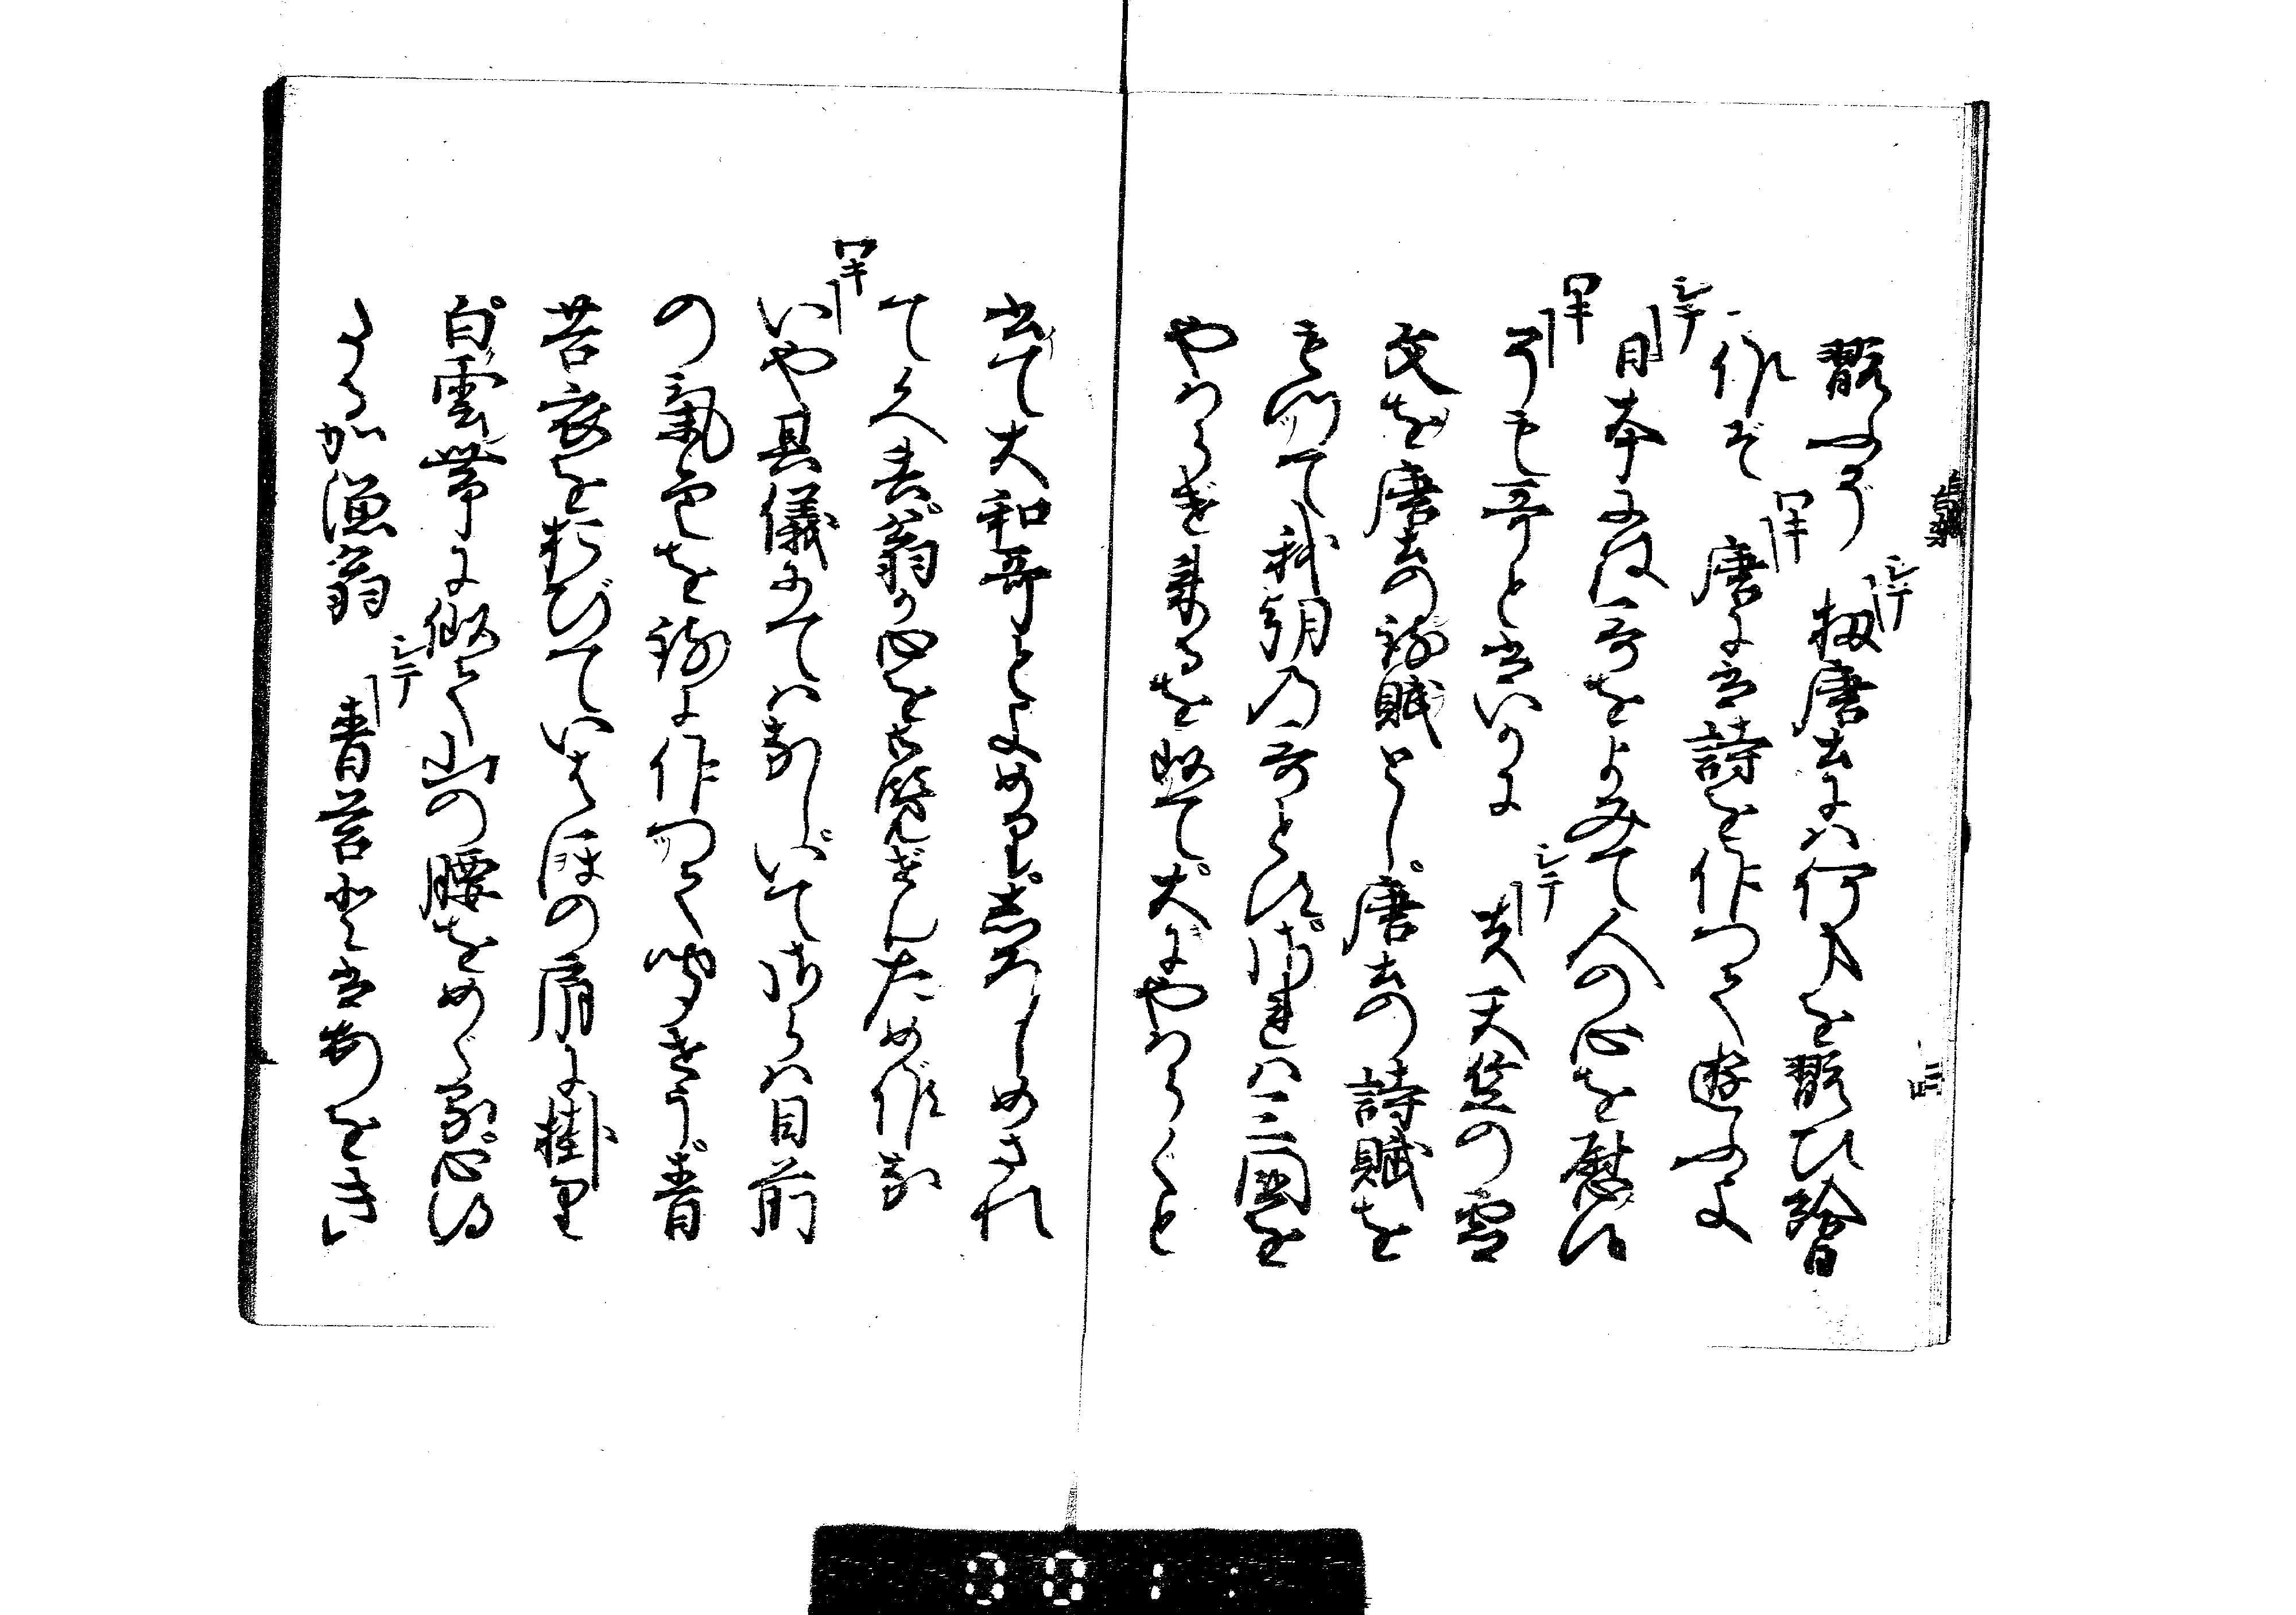 翫ふぞ シテ 扨唐土にハ何事を翫ひ給
候ぞ ワキ 唐にハ詩を作つて遊ふよ
シテ 日本にハ哥をよみて人の心を慰候
ワキ そも哥とハいかに シテ 夫天竺の霊
文を唐土の詩賦とし唐土の詩賦を
もつて我朝の哥とす されハ三国を
やハらぎ来るを以て大にやハらくと
書て大和哥とよめり しろしめされ
て候へ共翁か心を御覧ぜんため候な
ワキ いや其儀にてハなしいてさらハ目前
の氣色を詩に作つて聞せうぞ青
苔衣をおびていはほの肩に掛り
白雲帯に似て山の腰をめぐる心得
たるか漁翁 シテ 青苔とハあをき